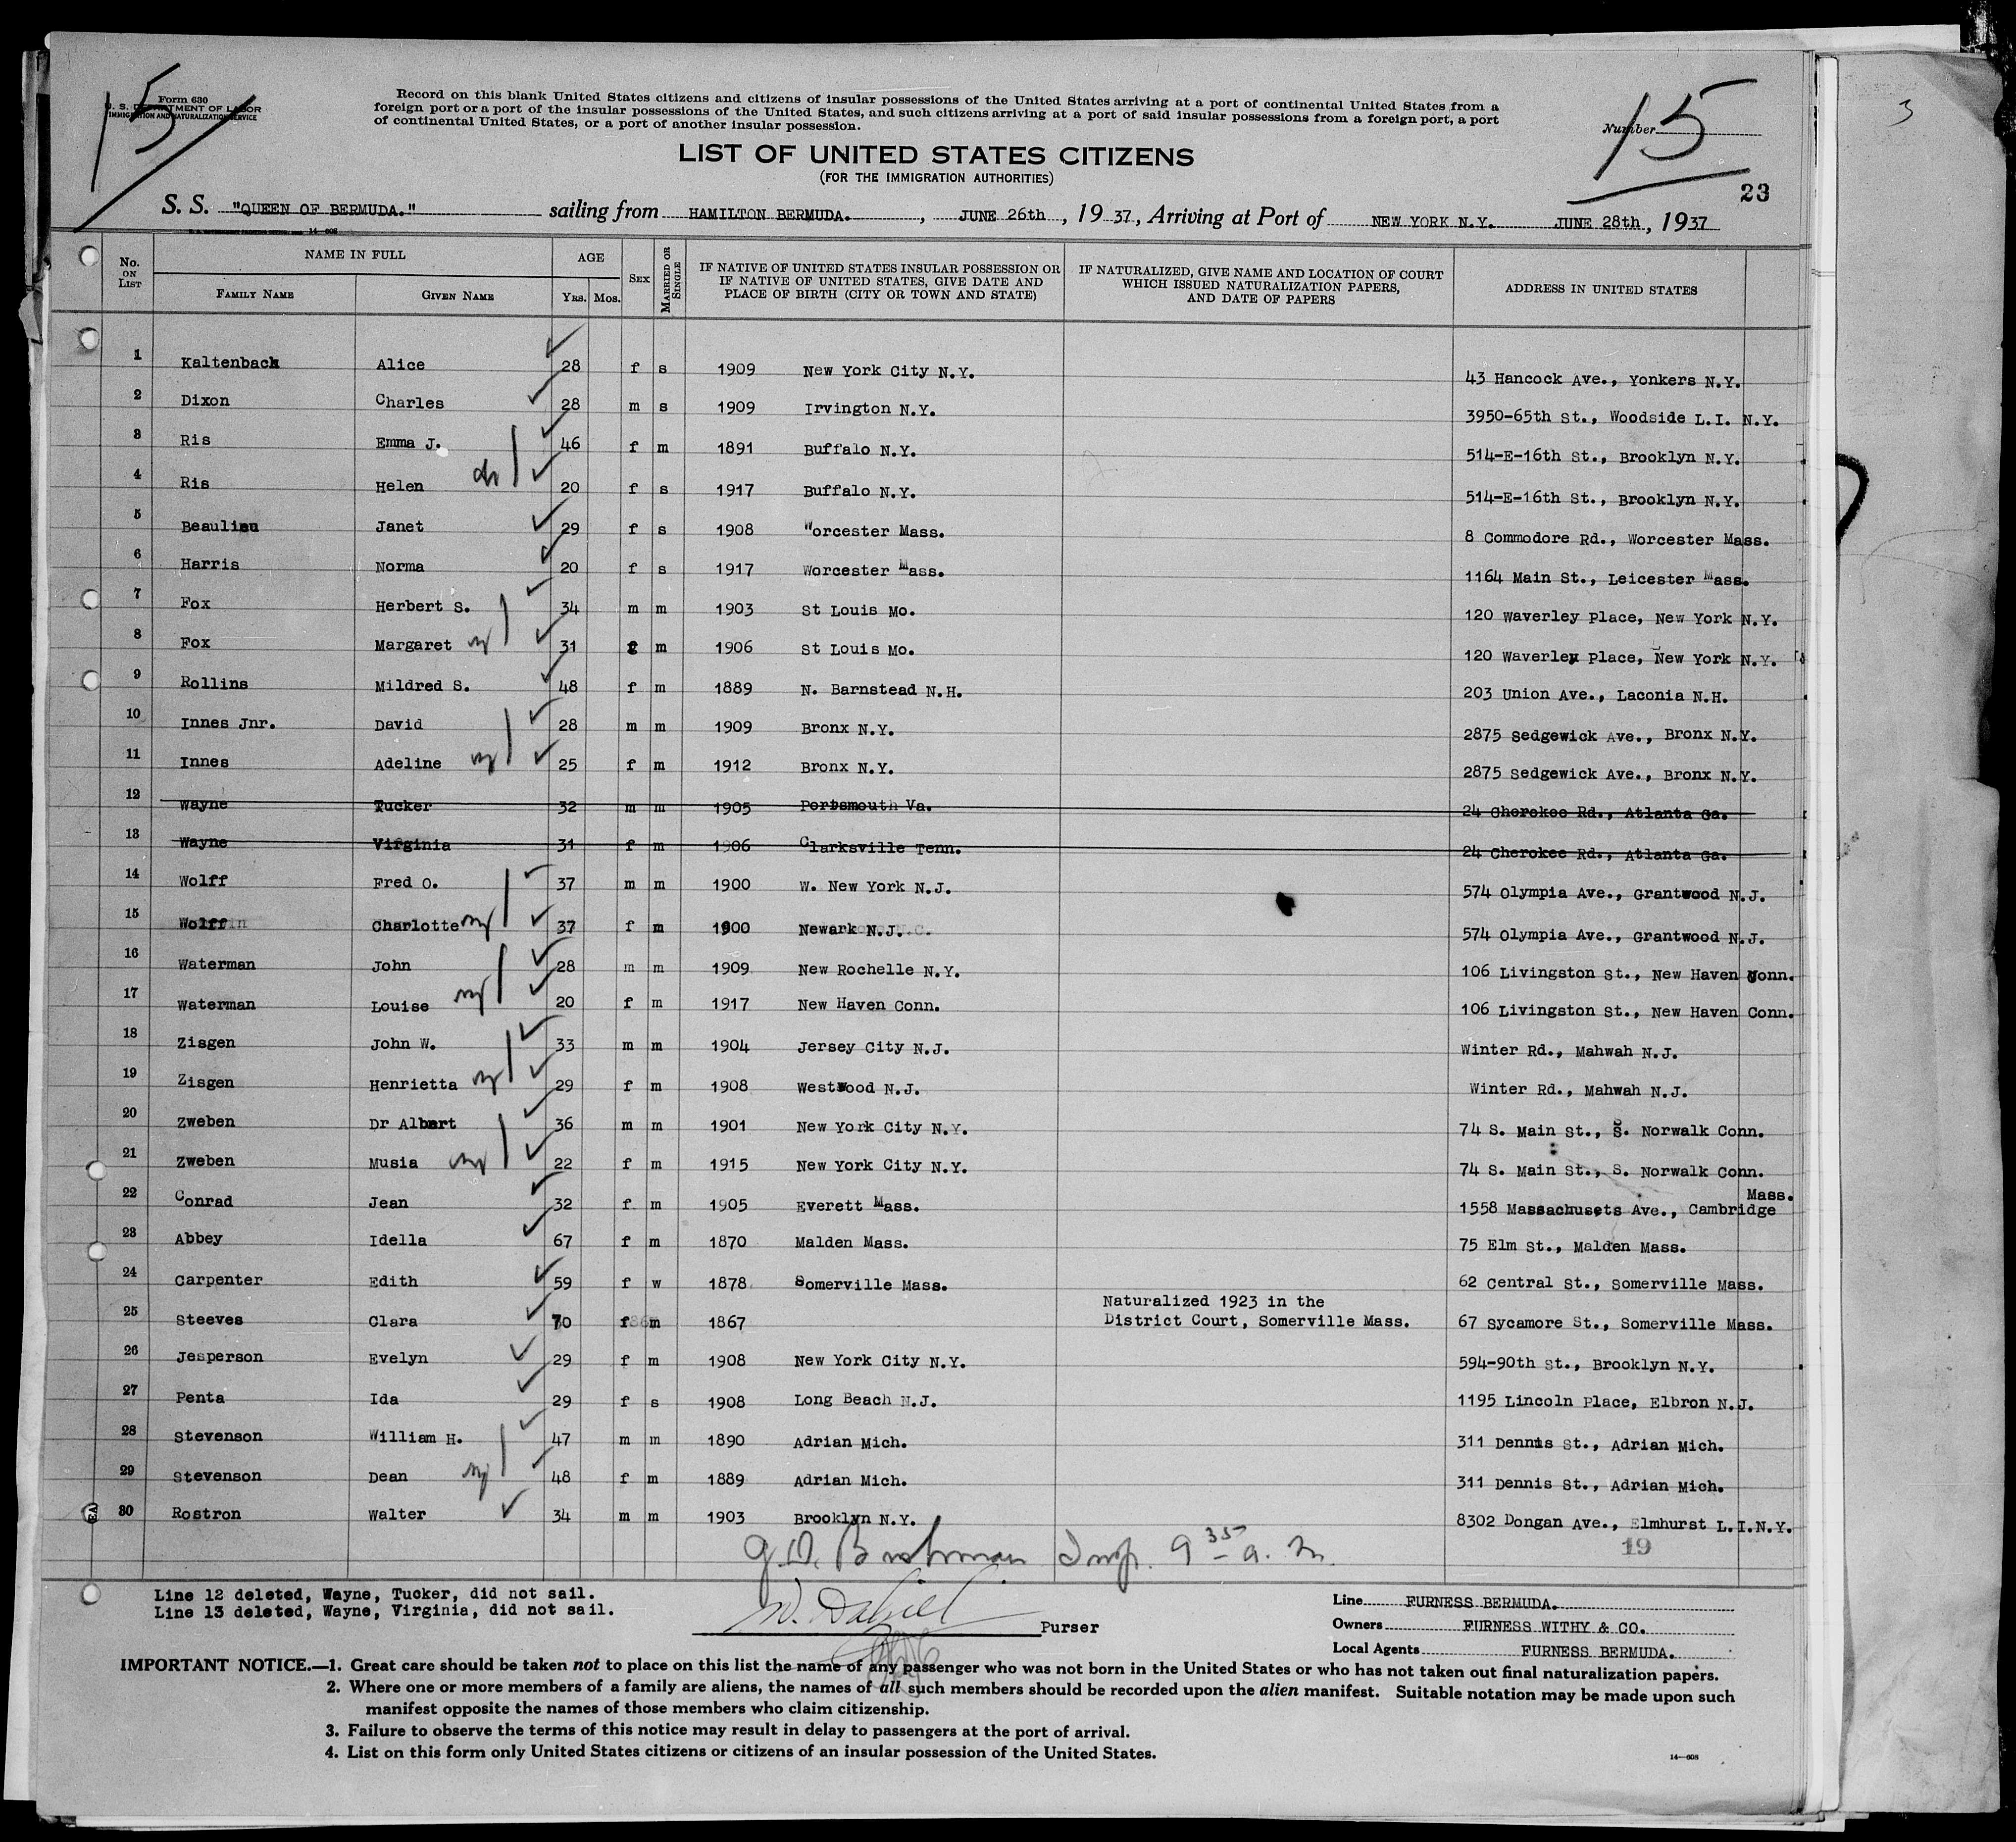 15
Form 630
U. S. DEPARTMENT OF LABOR
IMMIGRATION AND NATURALIZATION SERVICE
Record on this blank United States citizens and citizens of insular possessions of the United States arriving at a port of continental United States from a
foreign port or a port of the insular possessions of the United States, and such citizens arriving at a port of said insular possessions from a foreign port, a port
of continental United States, or a port of another insular possession.
Number 15
3
LIST OF UNITED STATES CITIZENS
(FOR THE IMMIGRATION AUTHORITIES)
23
S. S. "QUEEN OF BERMUDA." sailing from HAMILTON BERMUDA. , JUNE 26th , 19 37, Arriving at Port of NEW YORK N.Y. JUNE 28th , 1937
14—608
No. ON LIST
NAME IN FULL
FAMILY NAME GIVEN NAME
AGE
YRS. MOS.
SEX
MARRIED OR SINGLE
IF NATIVE OF UNITED STATES INSULAR POSSESSION OR
IF NATIVE OF UNITED STATES, GIVE DATE AND
PLACE OF BIRTH (CITY OR TOWN AND STATE)
IF NATURALIZED, GIVE NAME AND LOCATION OF COURT
WHICH ISSUED NATURALIZATION PAPERS,
AND DATE OF PAPERS
ADDRESS IN UNITED STATES
1 Kaltenback Alice 28 f s 1909 New York City N.Y. 43 Hancock Ave., Yonkers N.Y.
2 Dixon Charles 28 m s 1909 Irvington N.Y. 3950-65th St., Woodside L.I. N.Y.
3 Ris Emma J. 46 f m 1891 Buffalo N.Y. 514-E-16th St., Brooklyn N.Y.
4 Ris Helen 20 f s 1917 Buffalo N.Y. 514-E-16th St., Brooklyn N.Y.
5 Beaulieu Janet 29 f s 1908 Worcester Mass. 8 Commodore Rd., Worcester Mass.
6 Harris Norma 20 f s 1917 Worcester Mass. 1164 Main St., Leicester Mass.
7 Fox Herbert S. 34 m m 1903 St Louis Mo. 120 Waverley Place, New York N.Y.
8 Fox Margaret 31 f m 1906 St Louis Mo. 120 Waverley Place, New York N.Y.
9 Rollins Mildred S. 48 f m 1889 N. Barnstead N.H. 203 Union Ave., Laconia N.H.
10 Innes Jnr. David 28 m m 1909 Bronx N.Y. 2875 Sedgewick Ave., Bronx N.Y.
11 Innes Adeline 25 f m 1912 Bronx N.Y. 2875 Sedgewick Ave., Bronx N.Y.
12 Wayne Tucker 32 m m 1905 Portsmouth Va. 24 Cherokee Rd., Atlanta Ga.
13 Wayne Virginia 31 f m 1906 Clarksville Tenn. 24 Cherokee Rd., Atlanta Ga.
14 Wolff Fred O. 37 m m 1900 W. New York N.J. 574 Olympia Ave., Grantwood N.J.
15 Wolff Charlotte 37 f m 1900 Newark N.J. 574 Olympia Ave., Grantwood N.J.
16 Waterman John 28 m m 1909 New Rochelle N.Y. 106 Livingston St., New Haven Conn.
17 Waterman Louise 20 f m 1917 New Haven Conn. 106 Livingston St., New Haven Conn.
18 Zisgen John W. 33 m m 1904 Jersey City N.J. Winter Rd., Mahwah N.J.
19 Zisgen Henrietta 29 f m 1908 Westwood N.J. Winter Rd., Mahwah N.J.
20 Zweben Dr Albert 36 m m 1901 New York City N.Y. 74 S. Main St., S. Norwalk Conn.
21 Zweben Musia 22 f m 1915 New York City N.Y. 74 S. Main St., S. Norwalk Conn.
22 Conrad Jean 32 f m 1905 Everett Mass. 1558 Massachusets Ave., Cambridge Mass.
23 Abbey Idella 67 f m 1870 Malden Mass. 75 Elm St., Malden Mass.
24 Carpenter Edith 59 f w 1878 Somerville Mass. 62 Central St., Somerville Mass.
25 Steeves Clara 70 f m 1867 Naturalized 1923 in the District Court, Somerville Mass. 67 Sycamore St., Somerville Mass.
26 Jesperson Evelyn 29 f m 1908 New York City N.Y. 594-90th St., Brooklyn N.Y.
27 Penta Ida 29 f s 1908 Long Beach N.J. 1195 Lincoln Place, Elbron N.J.
28 Stevenson William H. 47 m m 1890 Adrian Mich. 311 Dennis St., Adrian Mich.
29 Stevenson Dean 48 f m 1889 Adrian Mich. 311 Dennis St., Adrian Mich.
30 Rostron Walter 34 m m 1903 Brooklyn N.Y. 8302 Dongan Ave., Elmhurst L.I.N.Y.
Insp. 9 35 a. m.
19
Line 12 deleted, Wayne, Tucker, did not sail.
Line 13 deleted, Wayne, Virginia, did not sail.
Purser
Line FURNESS BERMUDA.
Owners FURNESS WITHY & CO.
Local Agents FURNESS BERMUDA.
IMPORTANT NOTICE.—1. Great care should be taken not to place on this list the name of any passenger who was not born in the United States or who has not taken out final naturalization papers.
2. Where one or more members of a family are aliens, the names of all such members should be recorded upon the alien manifest. Suitable notation may be made upon such
manifest opposite the names of those members who claim citizenship.
3. Failure to observe the terms of this notice may result in delay to passengers at the port of arrival.
4. List on this form only United States citizens or citizens of an insular possession of the United States.
14—608